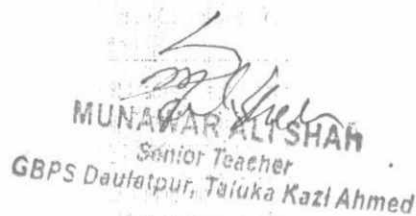 MUNAWAR ALI SHAH
Senior Teacher
GBPS Daulatpur, Taluka Kazi Ahmed